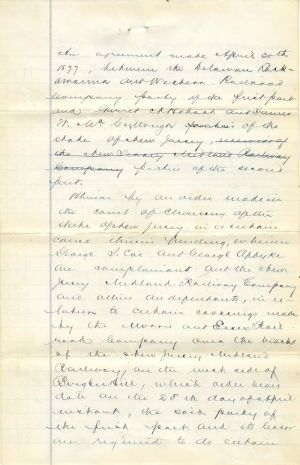 An agreement made April 20th
1877, between the Delaware Lack-
awanna and Western Railroad
Company party of the first part
and Garret A Hobart and James
W. McCullough parties of the
state of New Jersey,
the New Jersey Midland Railway
Company parties of the second
part.
Whereas by an order made in
the court of Chancery of the
state of New Jersey, in a certain
cause therein pending, wherein
George S. Coe and George Opdyke
are complainants and the New
Jersey Midland Railway Company
and others are defendants, in re-
lation to certain crossings made
by the Morris and Essex Rail-
road Company over the tracks
of the New Jersey Midland
Railway, on the west side of
Bergen Hill, which order bears
date on the 20th day of April
instant, the said party of
the first part and its lessor
are required to do certain